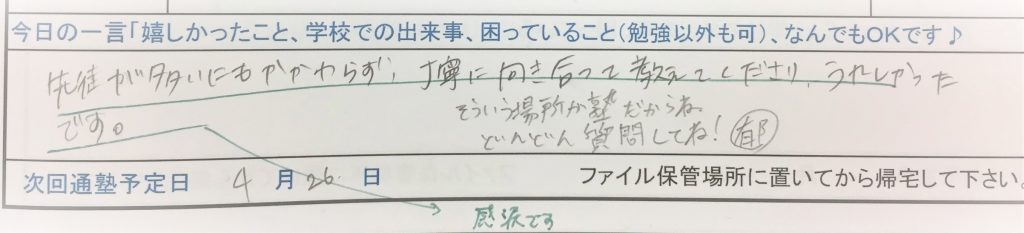 今日の一言「嬉しかったこと、学校での出来事、困っていること(勉強以外も可)、なんでもOKです♪
生徒が多いにもかかわらず、丁寧に向き合って教えてくださり、うれしかった
です。
そういう場所が塾だからね。
どんどん質問してね！ 郁
次回通塾予定日 4 月 26. 日 ファイル保管場所に置いてから帰宅して下さい。
感涙です